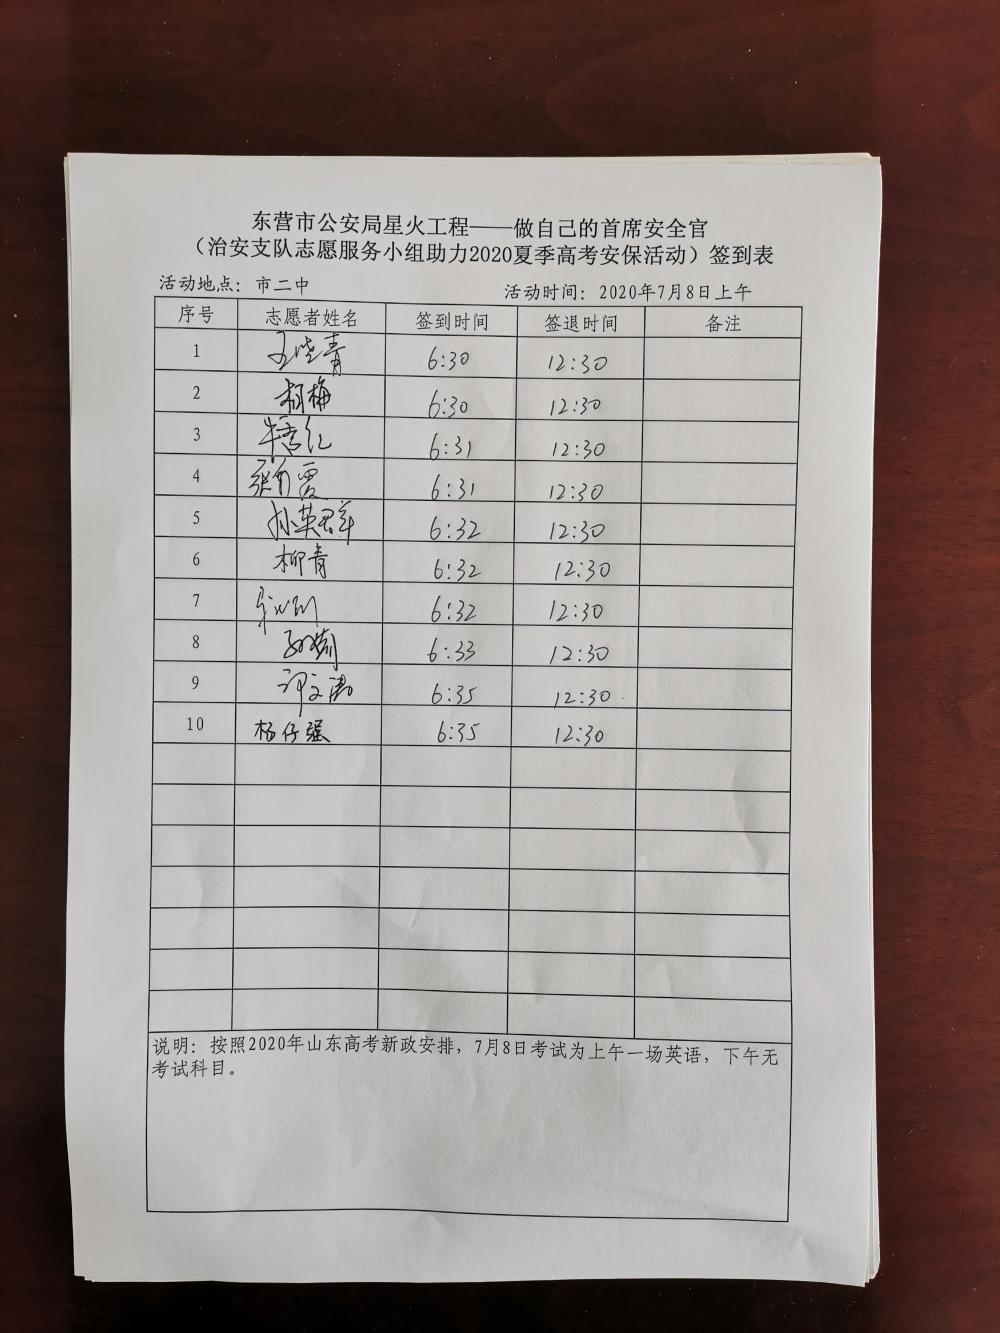 东营市公安局星火工程——做自己的首席安全官
（治安支队志愿服务小组助力2020夏季高考安保活动）签到表
活动地点：市二中 活动时间：2020年7月8日上午
序号 志愿者姓名 签到时间 签退时间 备注
1 王晓青 6:30 12:30
2 杨梅 6:30 12:30
3 6:31 12:30
4 张霞 6:31 12:30
5 孙英群 6:32 12:30
6 柳青 6:32 12:30
7 6:32 12:30
8 6:33 12:30
9 6:35 12:30
10 杨仔强 6:35 12:30
说明：按照2020年山东高考新政安排，7月8日考试为上午一场英语，下午无
考试科目。